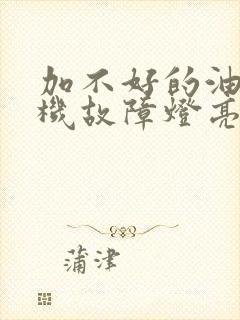 加不好的油
機故障燈亮
蒲津